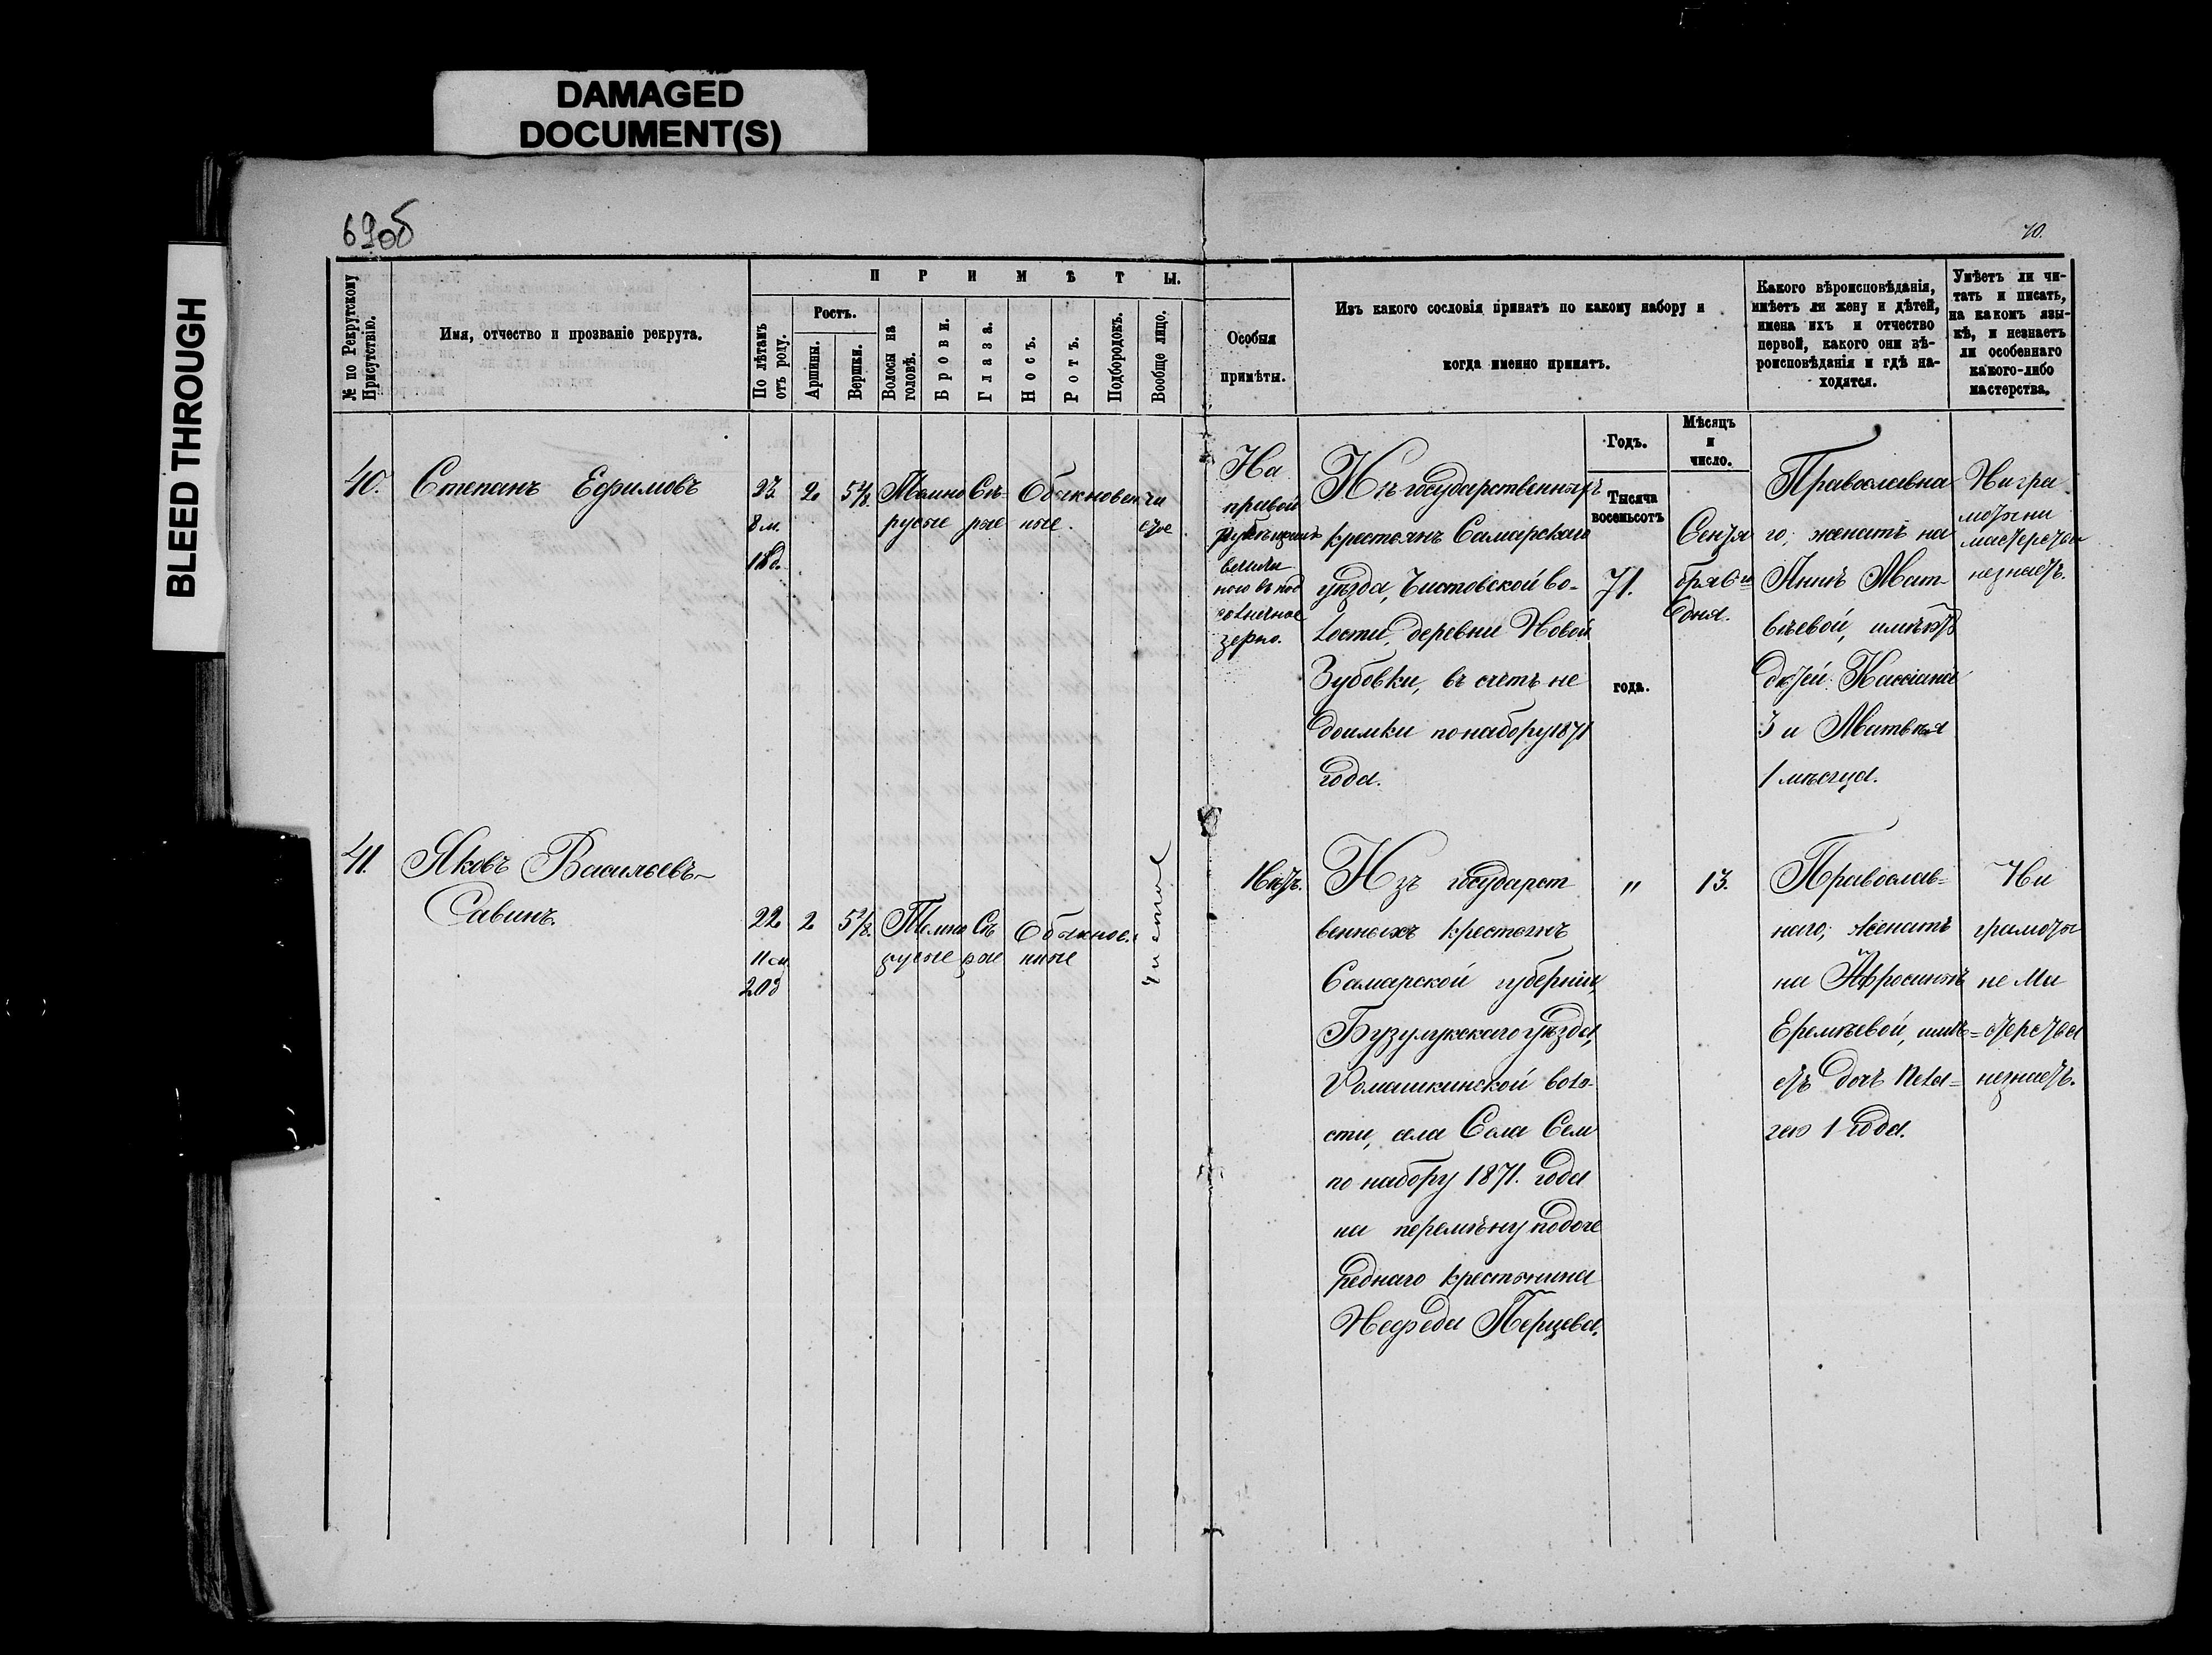 DAMAGED
DOCUMENT(S)
BLEED THROUGH
69об
70.
№ по Рекрутскому
Присутствію.
Имя, отчество и прозваніе рекрута.
ПРИМѢТЫ.
По лѣтамъ
отъ роду.
Ростъ.
Аршины.
Вершки.
Волосы на
головѣ.
Брови.
Глаза.
Носъ.
Ротъ.
Подбородокъ.
Вообще лицо.
Особыя
примѣты.
Изъ какого сословія принятъ по какому набору и
когда именно принятъ.
Какого вѣроисповѣданія,
имѣетъ ли жену и дѣтей,
имена ихъ и отчество
первой, какого они вѣ-
роисповѣданія и гдѣ на-
ходятся.
Умѣетъ ли чи-
тать и писать,
на какомъ язы-
кѣ, и незнаетъ
ли особеннаго
какого-либо
мастерства.
Годъ.
Мѣсяцъ
и
число.
Тысяча
восемьсотъ
71.
года.
40.
Степанъ Ефимовъ
23
8 м.
18 д.
2
5⅛
Темно
русые
Сѣ-
рые
Обыкновен
ные.
чи
стое
На
правой
величи
ною въ под
солнечное
зерно.
Изъ государственныхъ
крестьянъ Самарскаго
уѣзда, Чистовской во-
лости, деревни Новой
Зубовки, въ счетъ не
доимки по набору 1871
года.
Сентя
бря 6 и
дня.
Православна
го, женатъ на
Аннѣ Мат-
вѣевой, имѣетъ
дѣтей: Кассіана
3 и Матвѣя
1 мѣсяца.
Ни гра
моты ни
мастерства
незнаетъ.
41.
Яковъ Васильевъ
Савинъ.
22
11 м
20 д
2
5⅛.
Темно
русые
Сѣ
рые
Обыкнов.
нные
чистое
Нѣтъ.
Изъ государст
венныхъ крестьянъ
Самарской губерніи,
Бузулукскаго уѣзда,
Ромашкинской воло-
сти, села Села Сем
по набору 1871. года
на перемѣну подоче
реднаго крестьянина
Нефеда Перцева.
"
13.
Православ=
наго, женатъ
на Афросиньѣ
Еремѣевой, имѣ=
етъ дочь Пела=
гею 1 года.
Ни
грамоты
не ма
стерства
незнаетъ.